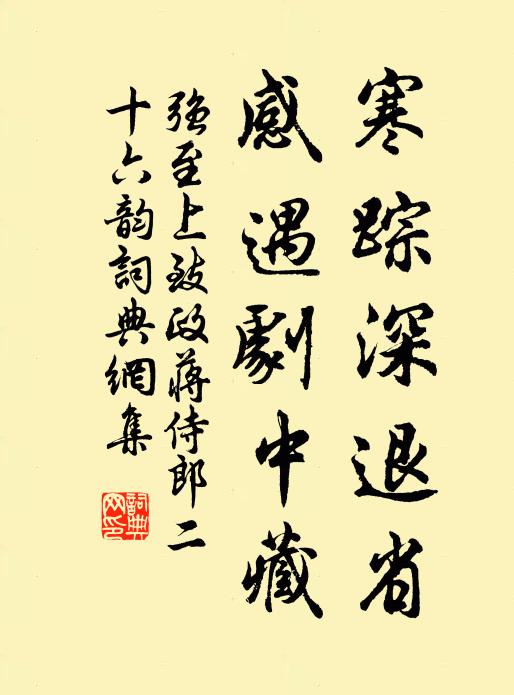 寒踪深退省
感遇劇中藏
强至上致政蔣侍郎二
十六韵詞典網集
詞典
网印